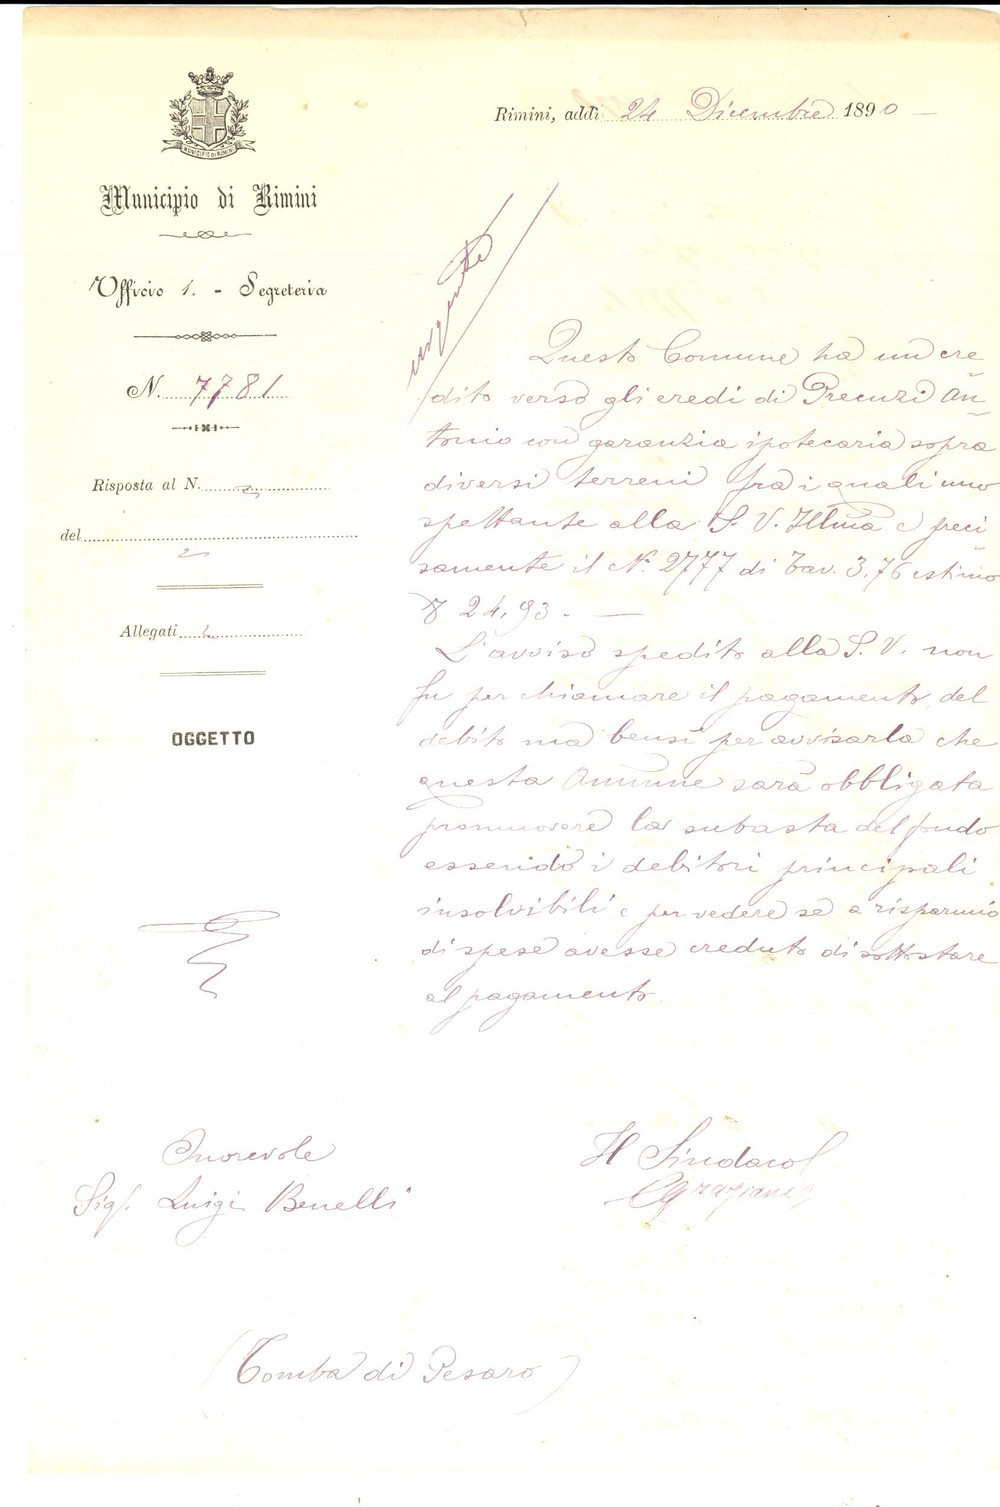 MUNICIPIO DI RIMINI
Municipio di Rimini
Ufficio 1. - Segreteria
N. 7781
Risposta al N.
del
Allegati
OGGETTO
Rimini, addì 24 Dicembre 1890
urgente
Questo Comune ha un cre
dito verso gli eredi di Precuzi An-
tonio con garanzia ipotecaria sopra
diversi terreni fra i quali uno
spettante alla S. V. Illma e preci
samente il N.º 2777 di Tav. 3,76 estimo
24,93. —
L'avviso spedito alla S. V. non
fu per chiamare il pagamento del
debito ma bensì per avvisarla che
questa Comune sarà obbligata
promuovere la subasta del fondo
essendo i debitori principali
insolvibili e per vedere se a risparmio
di spese avesse creduto di sottostare
al pagamento.
Il Sindaco
Onorevole
Sig. Luigi Benelli
(Tomba di Pesaro)